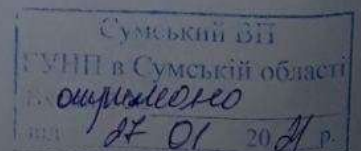 Сумський ВП
ГУНП в Сумській області
№ отримано
від 27 01 2021 р.